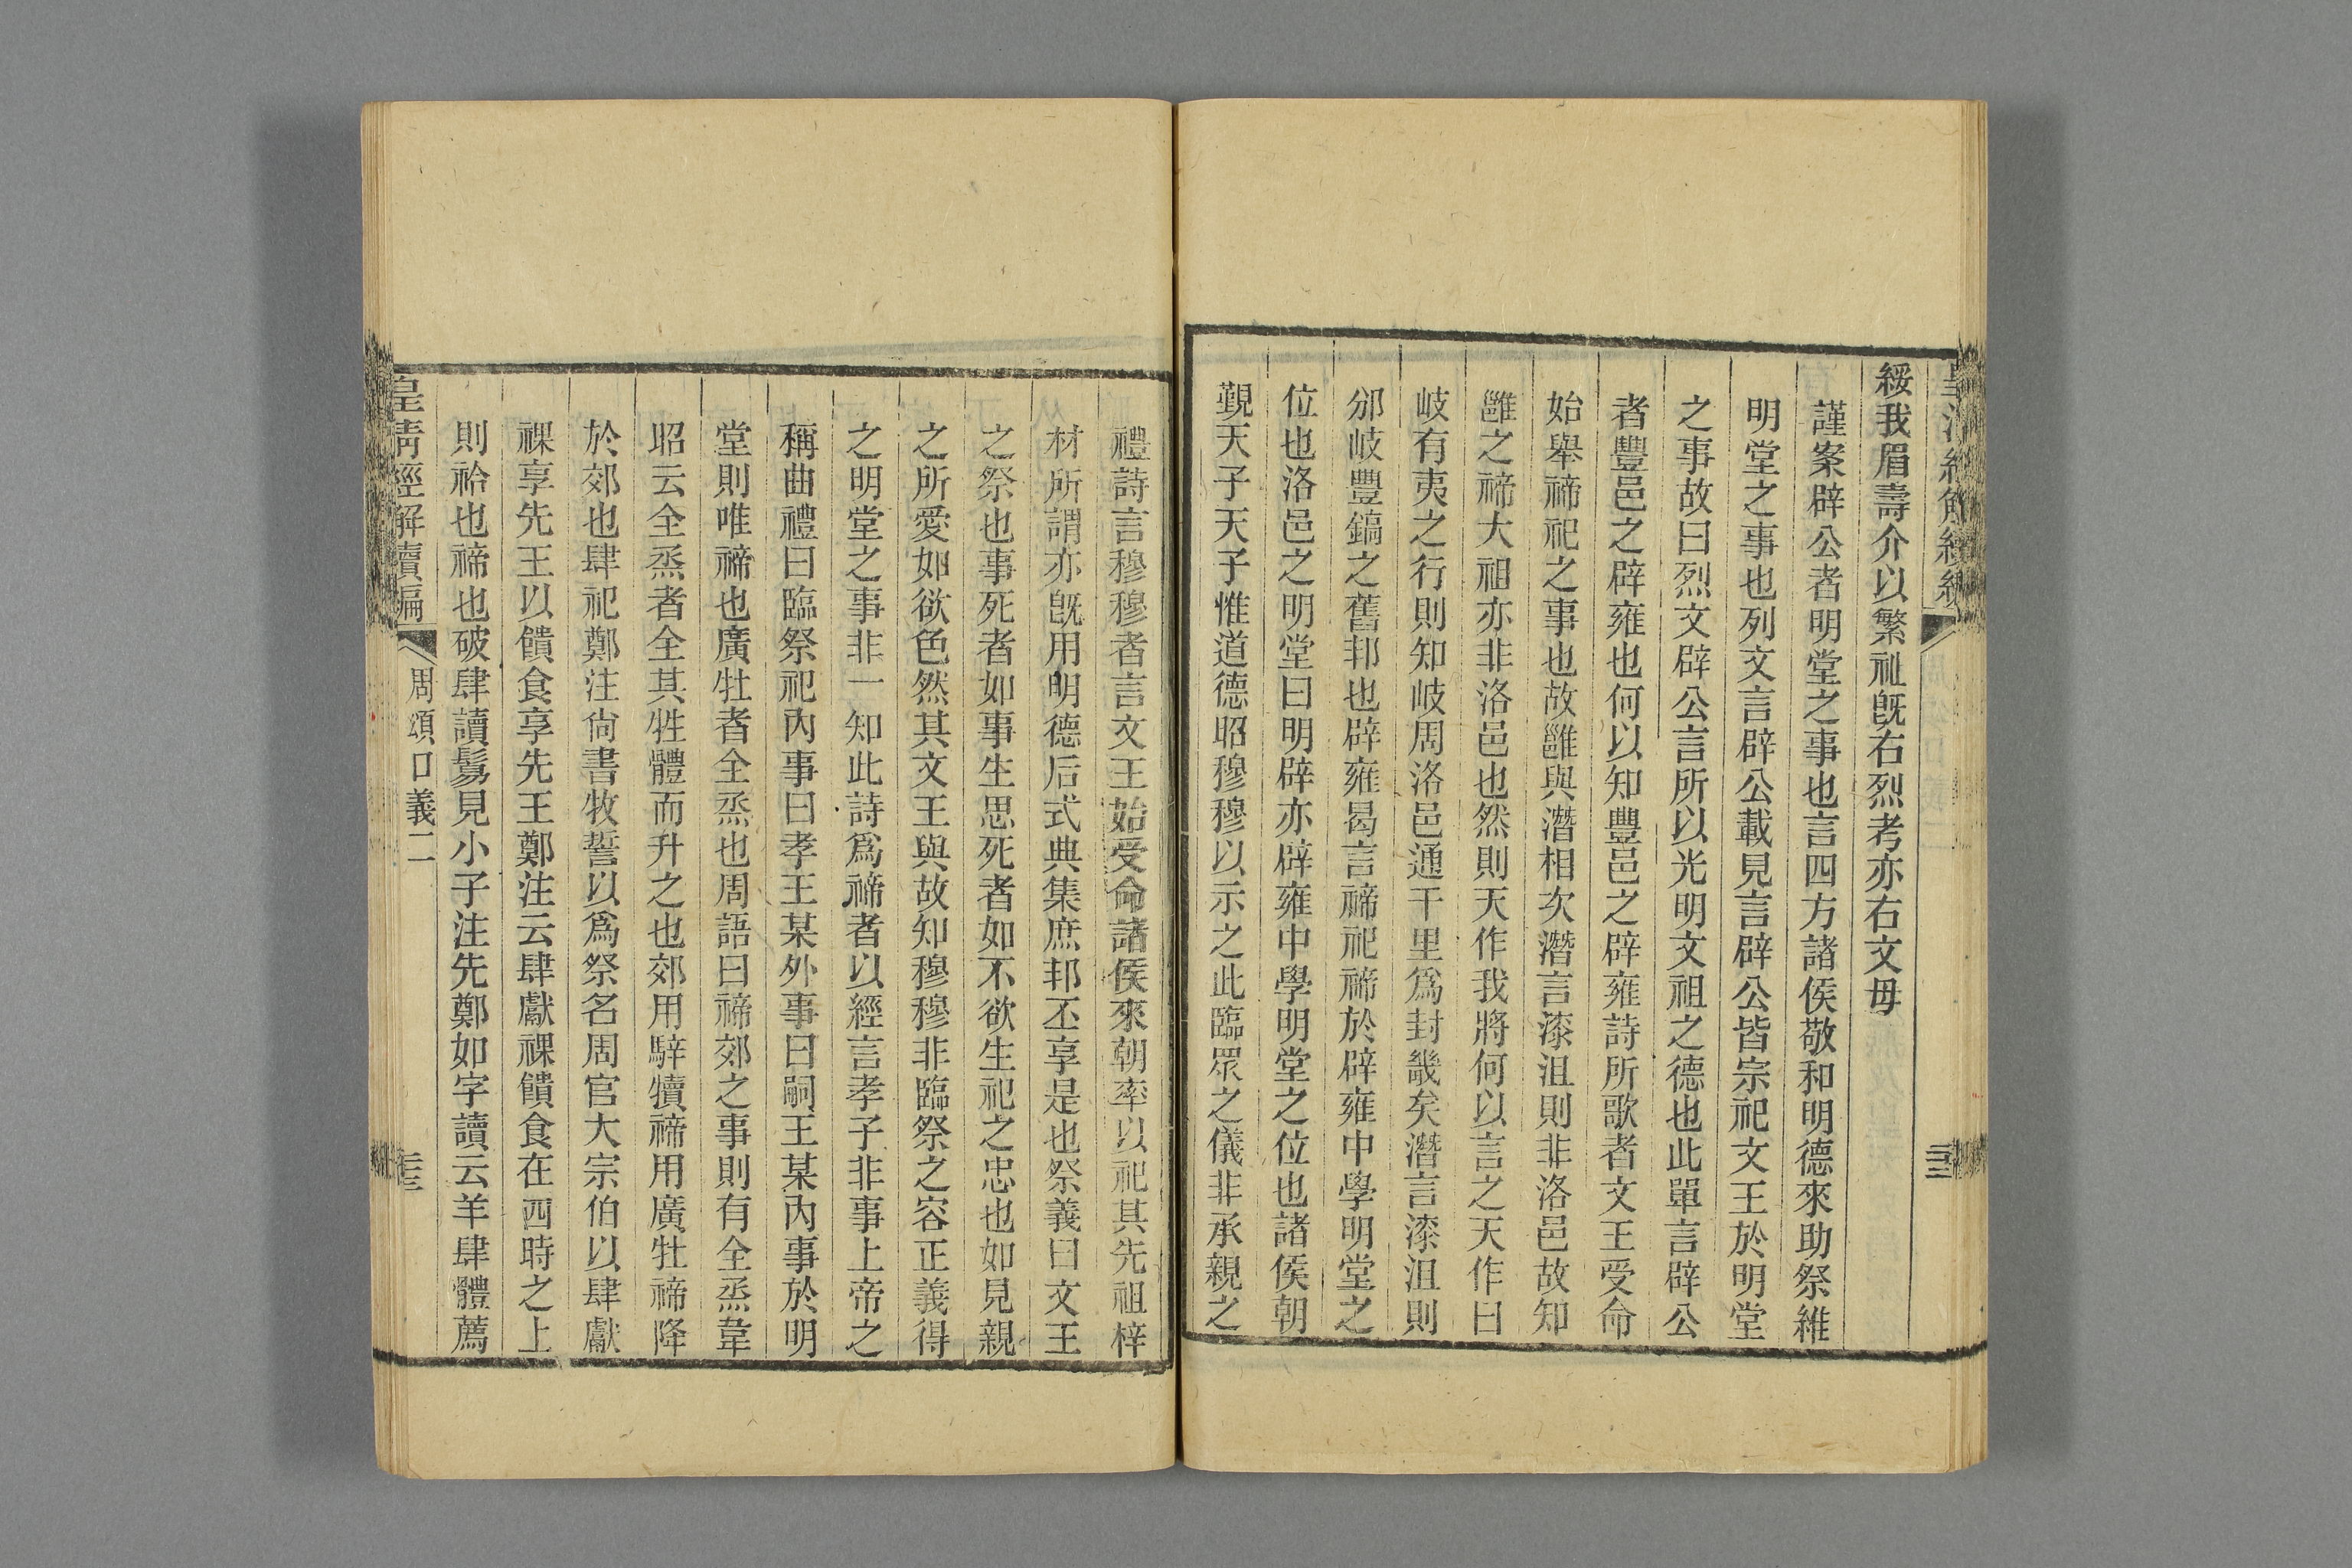 綏我眉壽介以繁祉旣右烈考亦右文母
謹案辟公者明堂之事也言四方諸侯敬和明德來助祭維
明堂之事也列文言辟公載見言辟公皆宗祀文王於明堂
之事故曰烈文辟公言所以光明文祖之德也此單言辟公
者豐邑之辟雍也何以知豐邑之辟雍詩所歌者文王受命
始舉禘祀之事也故雝與潛相次潛言漆沮則非洛邑故知
雝之禘大祖亦非洛邑也然則天作我將何以言之天作曰
岐有夷之行則知岐周洛邑通千里爲封畿矣潛言漆沮則
邠岐豐鎬之舊邦也辟雍曷言禘祀禘於辟雍中學明堂之
位也洛邑之明堂曰明辟亦辟雍中學明堂之位也諸侯朝
覲天子天子惟道德昭穆穆以示之此臨眾之儀非承親之
禮詩言穆穆者言文王始受命諸侯來朝率以祀其先祖梓
材所謂亦旣用明德后式典集庶邦丕享是也祭義曰文王
之祭也事死者如事生思死者如不欲生祀之忠也如見親
之所愛如欲色然其文王與故知穆穆非臨祭之容正義得
之明堂之事非一知此詩爲禘者以經言孝子非事上帝之
稱曲禮曰臨祭祀內事曰孝王某外事曰嗣王某內事於明
堂則唯禘也廣牡者全烝也周語曰禘郊之事則有全烝韋
昭云全烝者全其牲體而升之也郊用騂犢禘用廣牡禘降
於郊也肆祀鄭注尙書牧誓以爲祭名周官大宗伯以肆獻
祼享先王以饋食享先王鄭注云肆獻祼饋食在四時之上
則祫也禘也破肆讀鬄見小子注先鄭如字讀云羊肆體薦
皇淸經解續編
周頌口義二